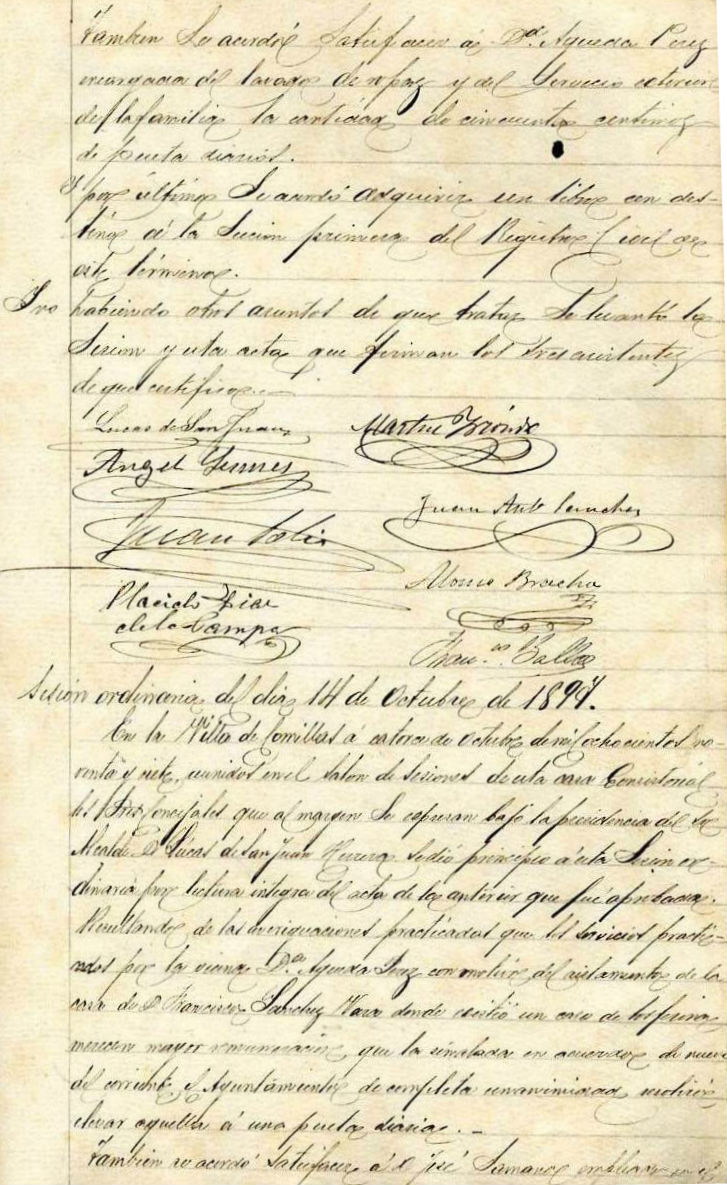 Tambien se acordó satisfacer á Dª. Agueda Perez
encargada del lavado de ropas y del servicio exterior
de la familia la cantidad de cincuenta centimos
de peseta diarios.
Y por último se acordó adquirir un libro con des-
tino á la Seccion primera del Registro Civil de
este término.
Y no habiendo otros asuntos de que tratar se levantó la
Sesion y esta acta que firman los Sres asistentes
de que certifico.
Lucas de San Juan
Angel
Juan Ant Sanchez
Juan Solis
Alonso Bracho
Placido Diaz
de la Campa
Sesión ordinaria del dia 14 de Octubre de 1897.
En la Villa de Comillas á catorce de Octubre de mil ochocientos no-
venta y siete, reunidos en el salon de sesiones de esta casa Consistorial
los Sres Concejales que al margen se espresan bajo la presidencia del Sr
Alcalde D Lucas de San Juan Herrera se dió principio á esta Sesion or-
dinaria por lectura integra del acta de la anterior que fué aprobada.
Resultando de las averiguaciones practicadas que los servicios practi-
cados por la vecina Dª Agueda Perez con motivo del aislamiento de la
casa de D Francisco Sanchez Vara donde existió un caso de
merecen mayor remuneracion que la señalada en acuerdo de nueve
del corriente, el Ayuntamiento de completa unanimidad resolvió
elevar aquella á una peseta diaria.
Tambien se acordó satisfacer á D José empleado en el